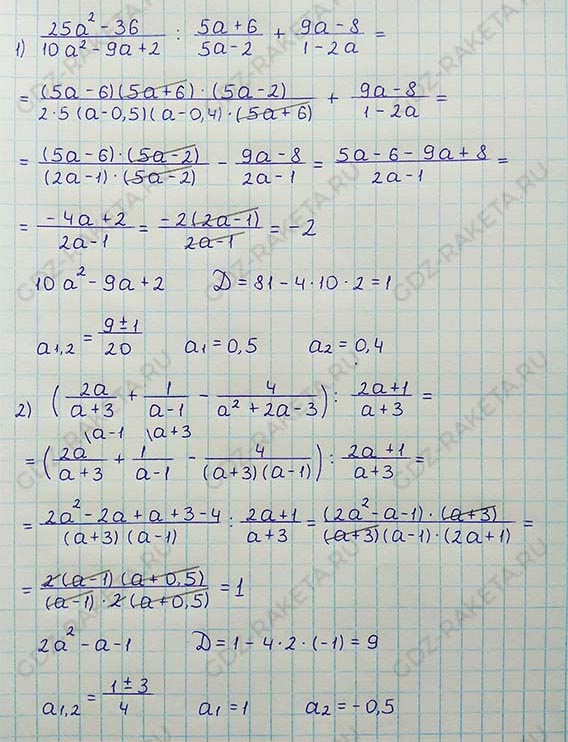 1) (25a² - 36)/(10a² - 9a + 2) : (5a + 6)/(5a - 2) + (9a - 8)/(1 - 2a) =
= ((5a - 6)(5a + 6) · (5a - 2))/(2 · 5 (a - 0,5)(a - 0,4) · (5a + 6)) + (9a - 8)/(1 - 2a) =
= ((5a - 6) · (5a - 2))/((2a - 1) · (5a - 2)) - (9a - 8)/(2a - 1) = (5a - 6 - 9a + 8)/(2a - 1) =
= (-4a + 2)/(2a - 1) = (-2(2a - 1))/(2a - 1) = -2
10a² - 9a + 2 D = 81 - 4 · 10 · 2 = 1
a1,2 = (9 ± 1)/20 a1 = 0,5 a2 = 0,4
2) (2a/(a + 3) + 1/(a - 1) - 4/(a² + 2a - 3)) : (2a + 1)/(a + 3) =
\a - 1 \a + 3
= (2a/(a + 3) + 1/(a - 1) - 4/((a + 3)(a - 1))) : (2a + 1)/(a + 3) =
= (2a² - 2a + a + 3 - 4)/((a + 3)(a - 1)) : (2a + 1)/(a + 3) = ((2a² - a - 1) · (a + 3))/((a + 3)(a - 1) · (2a + 1)) =
= (2(a - 1)(a + 0,5))/((a - 1) · 2(a + 0,5)) = 1
2a² - a - 1 D = 1 - 4 · 2 · (-1) = 9
a1,2 = (1 ± 3)/4 a1 = 1 a2 = -0,5
GDZ-RAKETA.RU